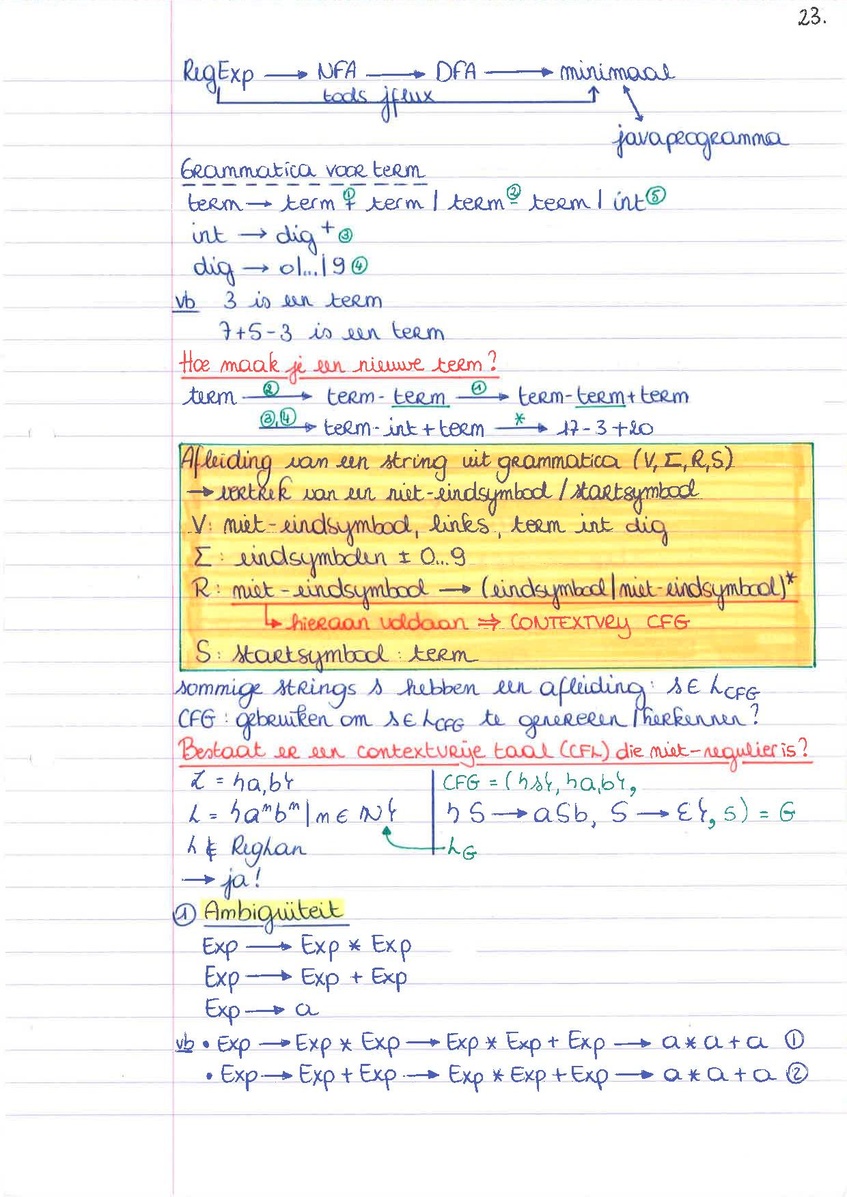 23.
RegExp → NFA → DFA → minimaal
tools jflux
javaprogramma
Grammatica voor term
term → term +① term | term -② term | int⑤
int → dig⁺③
dig → 0|...|9④
vb 3 is een term
7+5-3 is een term
Hoe maak je een nieuwe term?
term →② term-term →① term-term+term
→③,④ term-int+term →* 17-3+20
Afleiding van een string uit grammatica (V,Σ,R,S)
→ vertrek van een niet-eindsymbool / startsymbool
V: niet-eindsymbool, links, term int dig
Σ: eindsymbolen ± 0...9
R: niet-eindsymbool → (eindsymbool|niet-eindsymbool)*
↳ hieraan voldaan ⇒ CONTEXTVRIJ CFG
S: startsymbool: term
sommige strings s hebben een afleiding: s∈L_CFG
CFG: gebruiken om s∈L_CFG te genereren/herkennen?
Bestaat er een contextvrije taal (CFL) die niet-regulier is?
Σ = {a,b}
L = {aⁿbⁿ|n∈ℕ}
L ∉ RegLan
→ ja!
CFG = ({S}, {a,b},
{S → aSb, S → ε}, S) = G
L_G
① Ambiguïteit
Exp → Exp * Exp
Exp → Exp + Exp
Exp → a
vb • Exp → Exp * Exp → Exp * Exp + Exp → a*a+a ①
• Exp → Exp + Exp → Exp * Exp + Exp → a*a+a ②